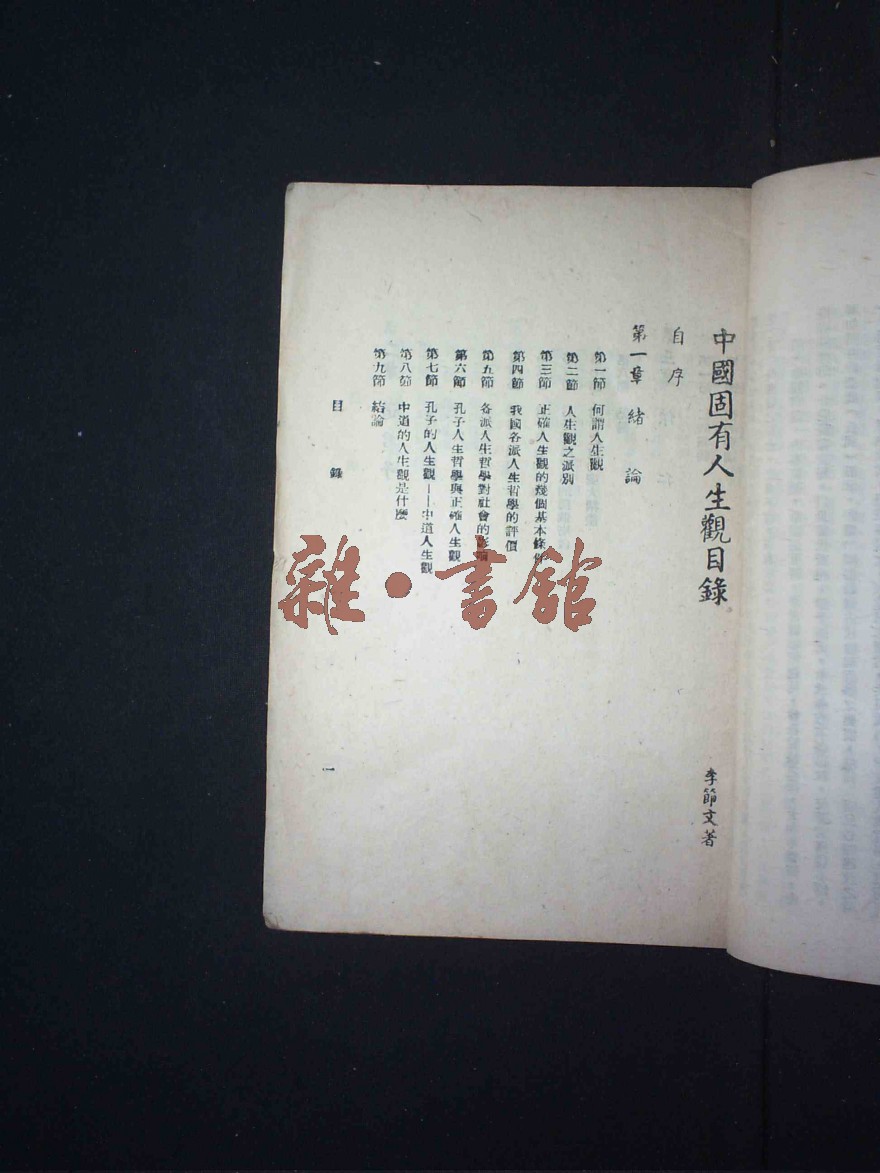 中國固有人生觀目錄
李節文著
自序
第一章 緒論
第一節 何謂人生觀
第二節 人生觀之派別
第三節 正確人生觀的幾個基本條件
第四節 我國各派人生哲學的評價
第五節 各派人生哲學對社會的影響
第六節 孔子人生哲學與正確人生觀
第七節 孔子的人生觀——中道人生觀
第八節 中道的人生觀是什麼
第九節 結論
目錄
一
雜·書館